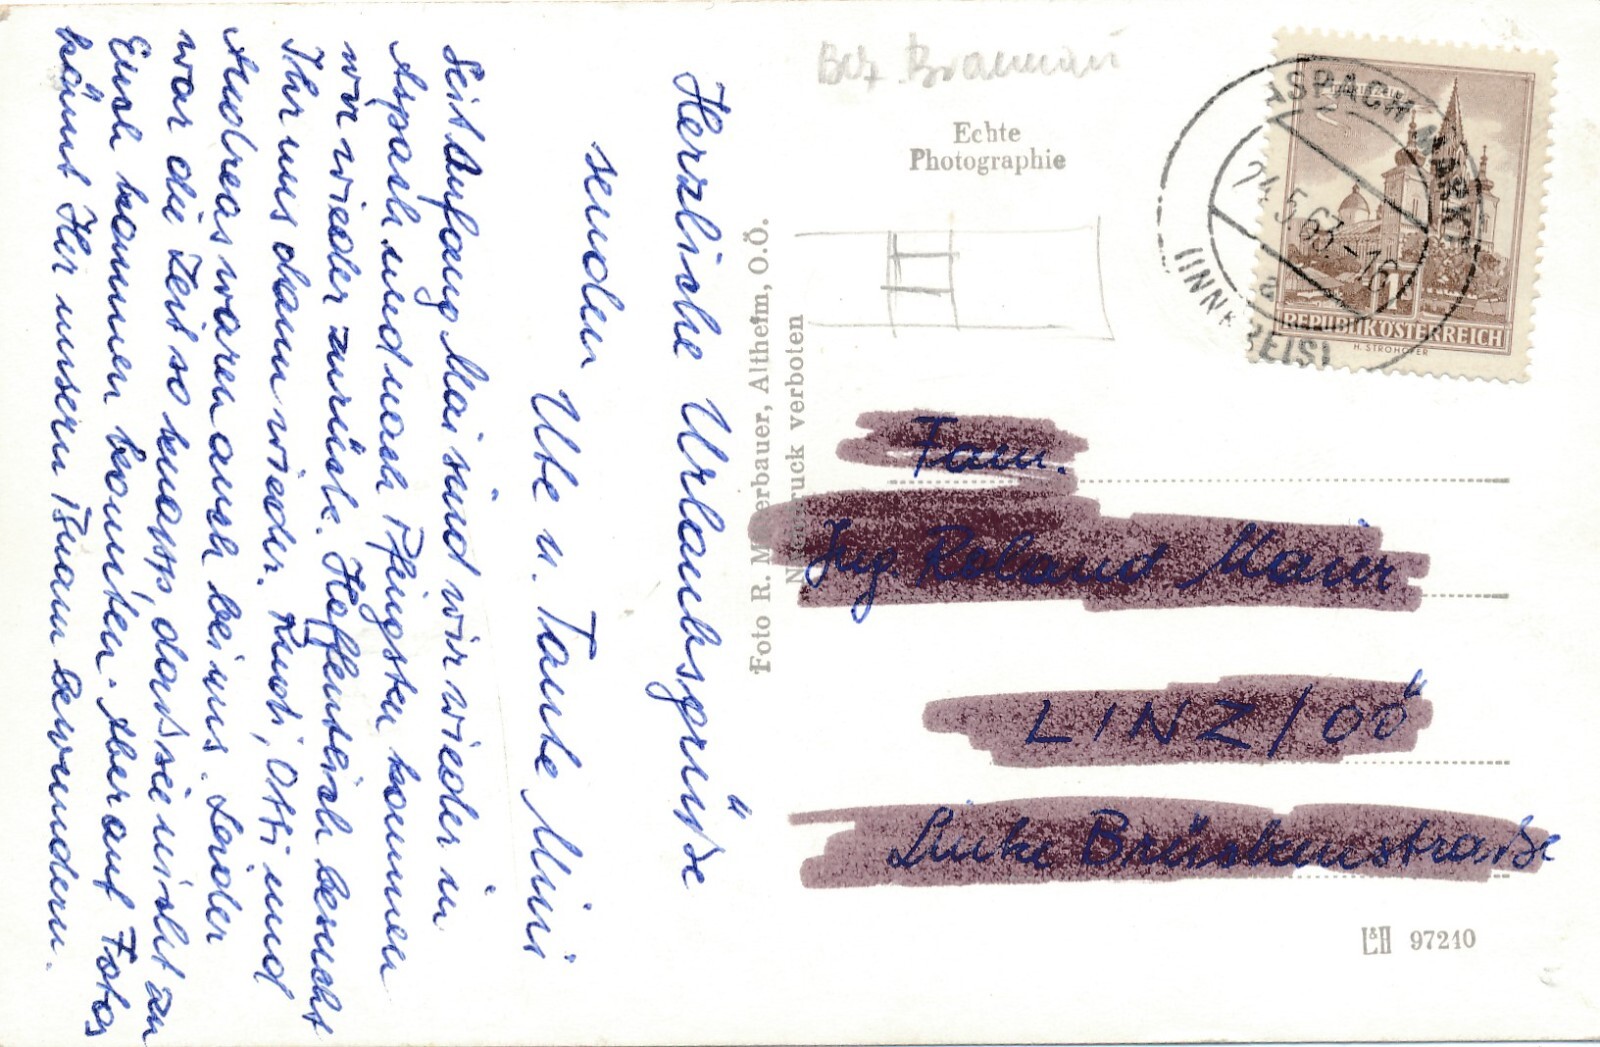 Herzliche Urlaubsgrüße
senden
Ube u. Tante Mimi
Seit Anfang Mai sind wir wieder in
Aspach und nach Pfingsten kommen
wir wieder zurück. Hoffentlich besucht
Ihr uns dann wieder. Rudi, Otti und
Andreas waren auch bei uns. Leider
war die Zeit so knapp, daß sie nicht zu
Euch kommen konnten. Aber auf Fotos
könnt Ihr unseren Buam bewundern.
Foto R. M erbauer, Altheim, O.Ö.
Nachdruck verboten
Bez Braunau
Echte
Photographie
II
ASPACH MARKT
24.5.63.-16
a
(INNKREIS)
MARIAZELL
1S
REPUBLIK ÖSTERREICH
H. STROHOFER
Fam.
Ing. Roland Maier
LINZ/OÖ
Linke Brückenstraße
L&H 97240